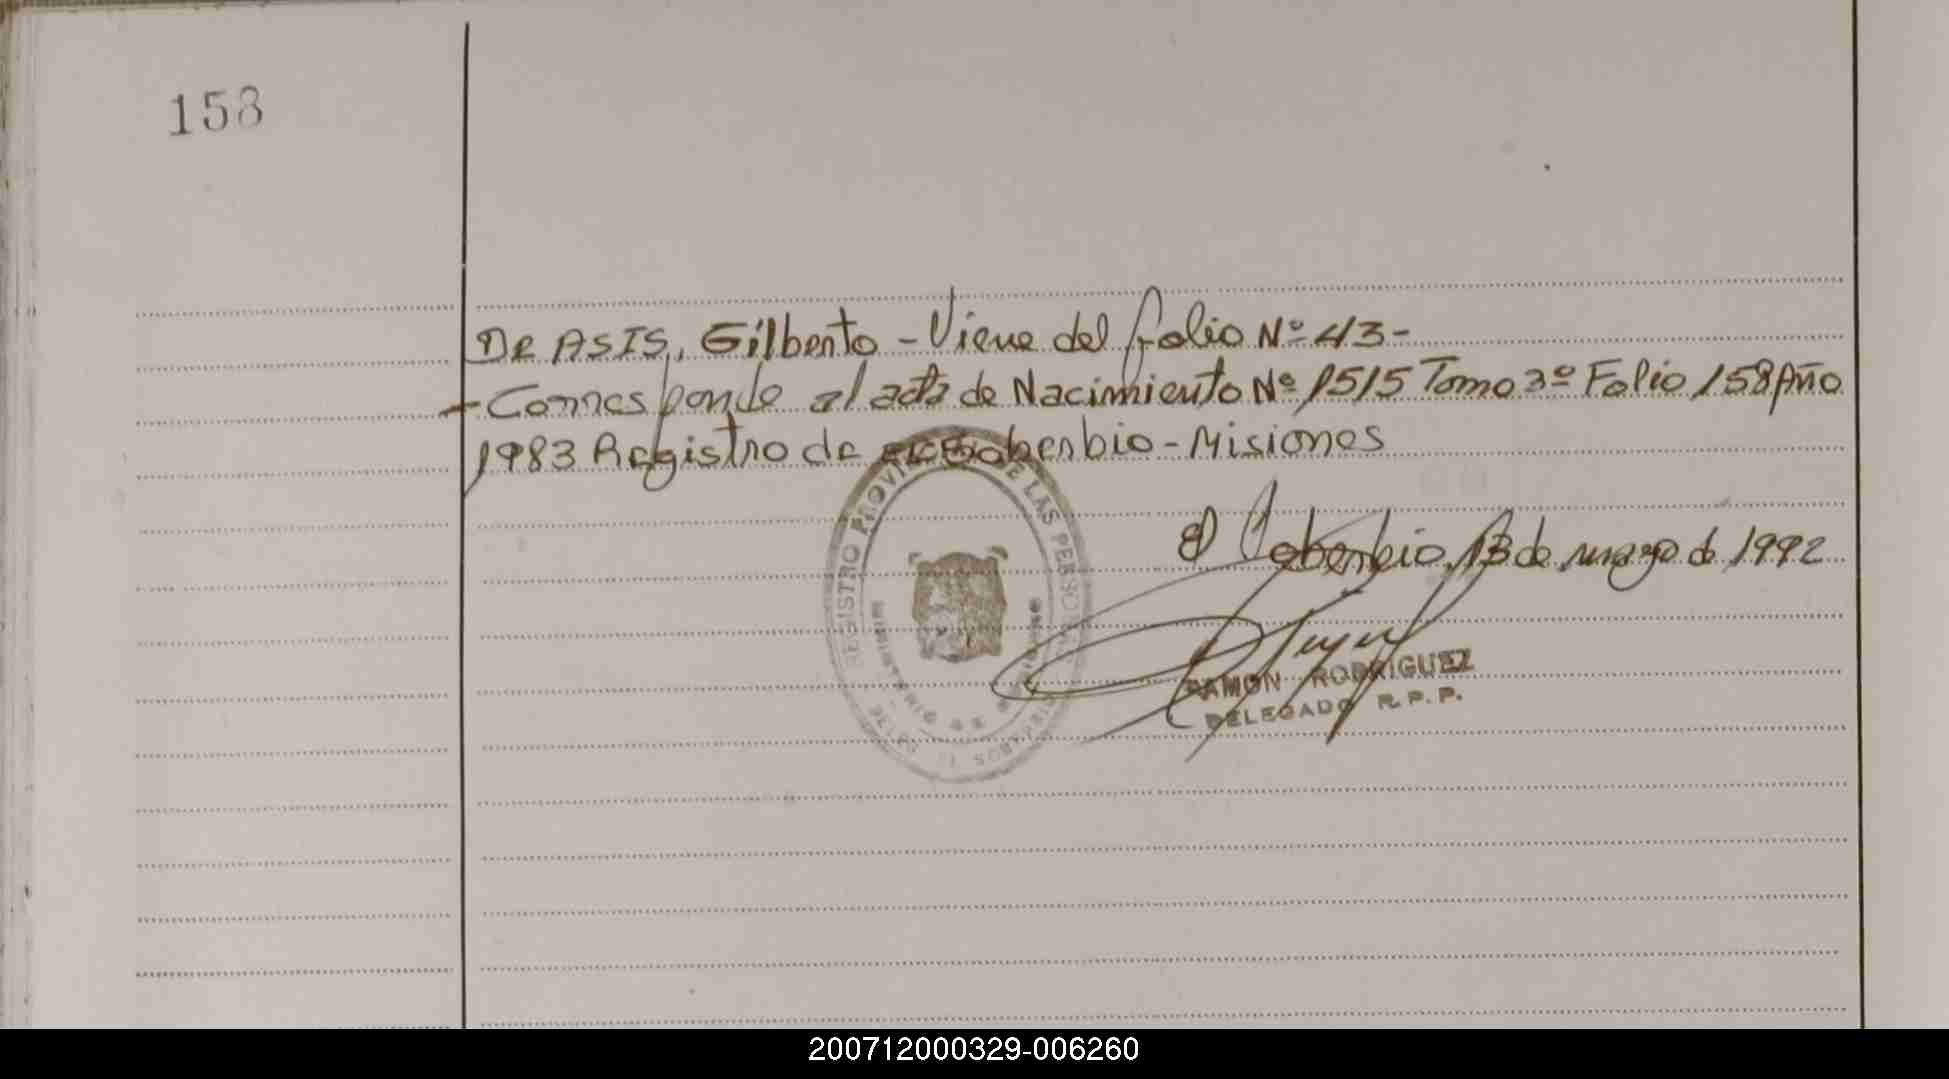 158
De ASIS, Gilberto - Viene del folio Nº 43-
- Corresponde al acta de Nacimiento Nº 1515 Tomo 3º Folio 158 Año
1983 Registro de Soberbio - Misiones
El Soberbio, 13 de marzo de 1992
REGISTRO PROVINCIAL DE LAS PERSONAS
MINISTERIO DE GOBIERNO
RAMON RODRIGUEZ
DELEGADO R.P.P.
200712000329-006260